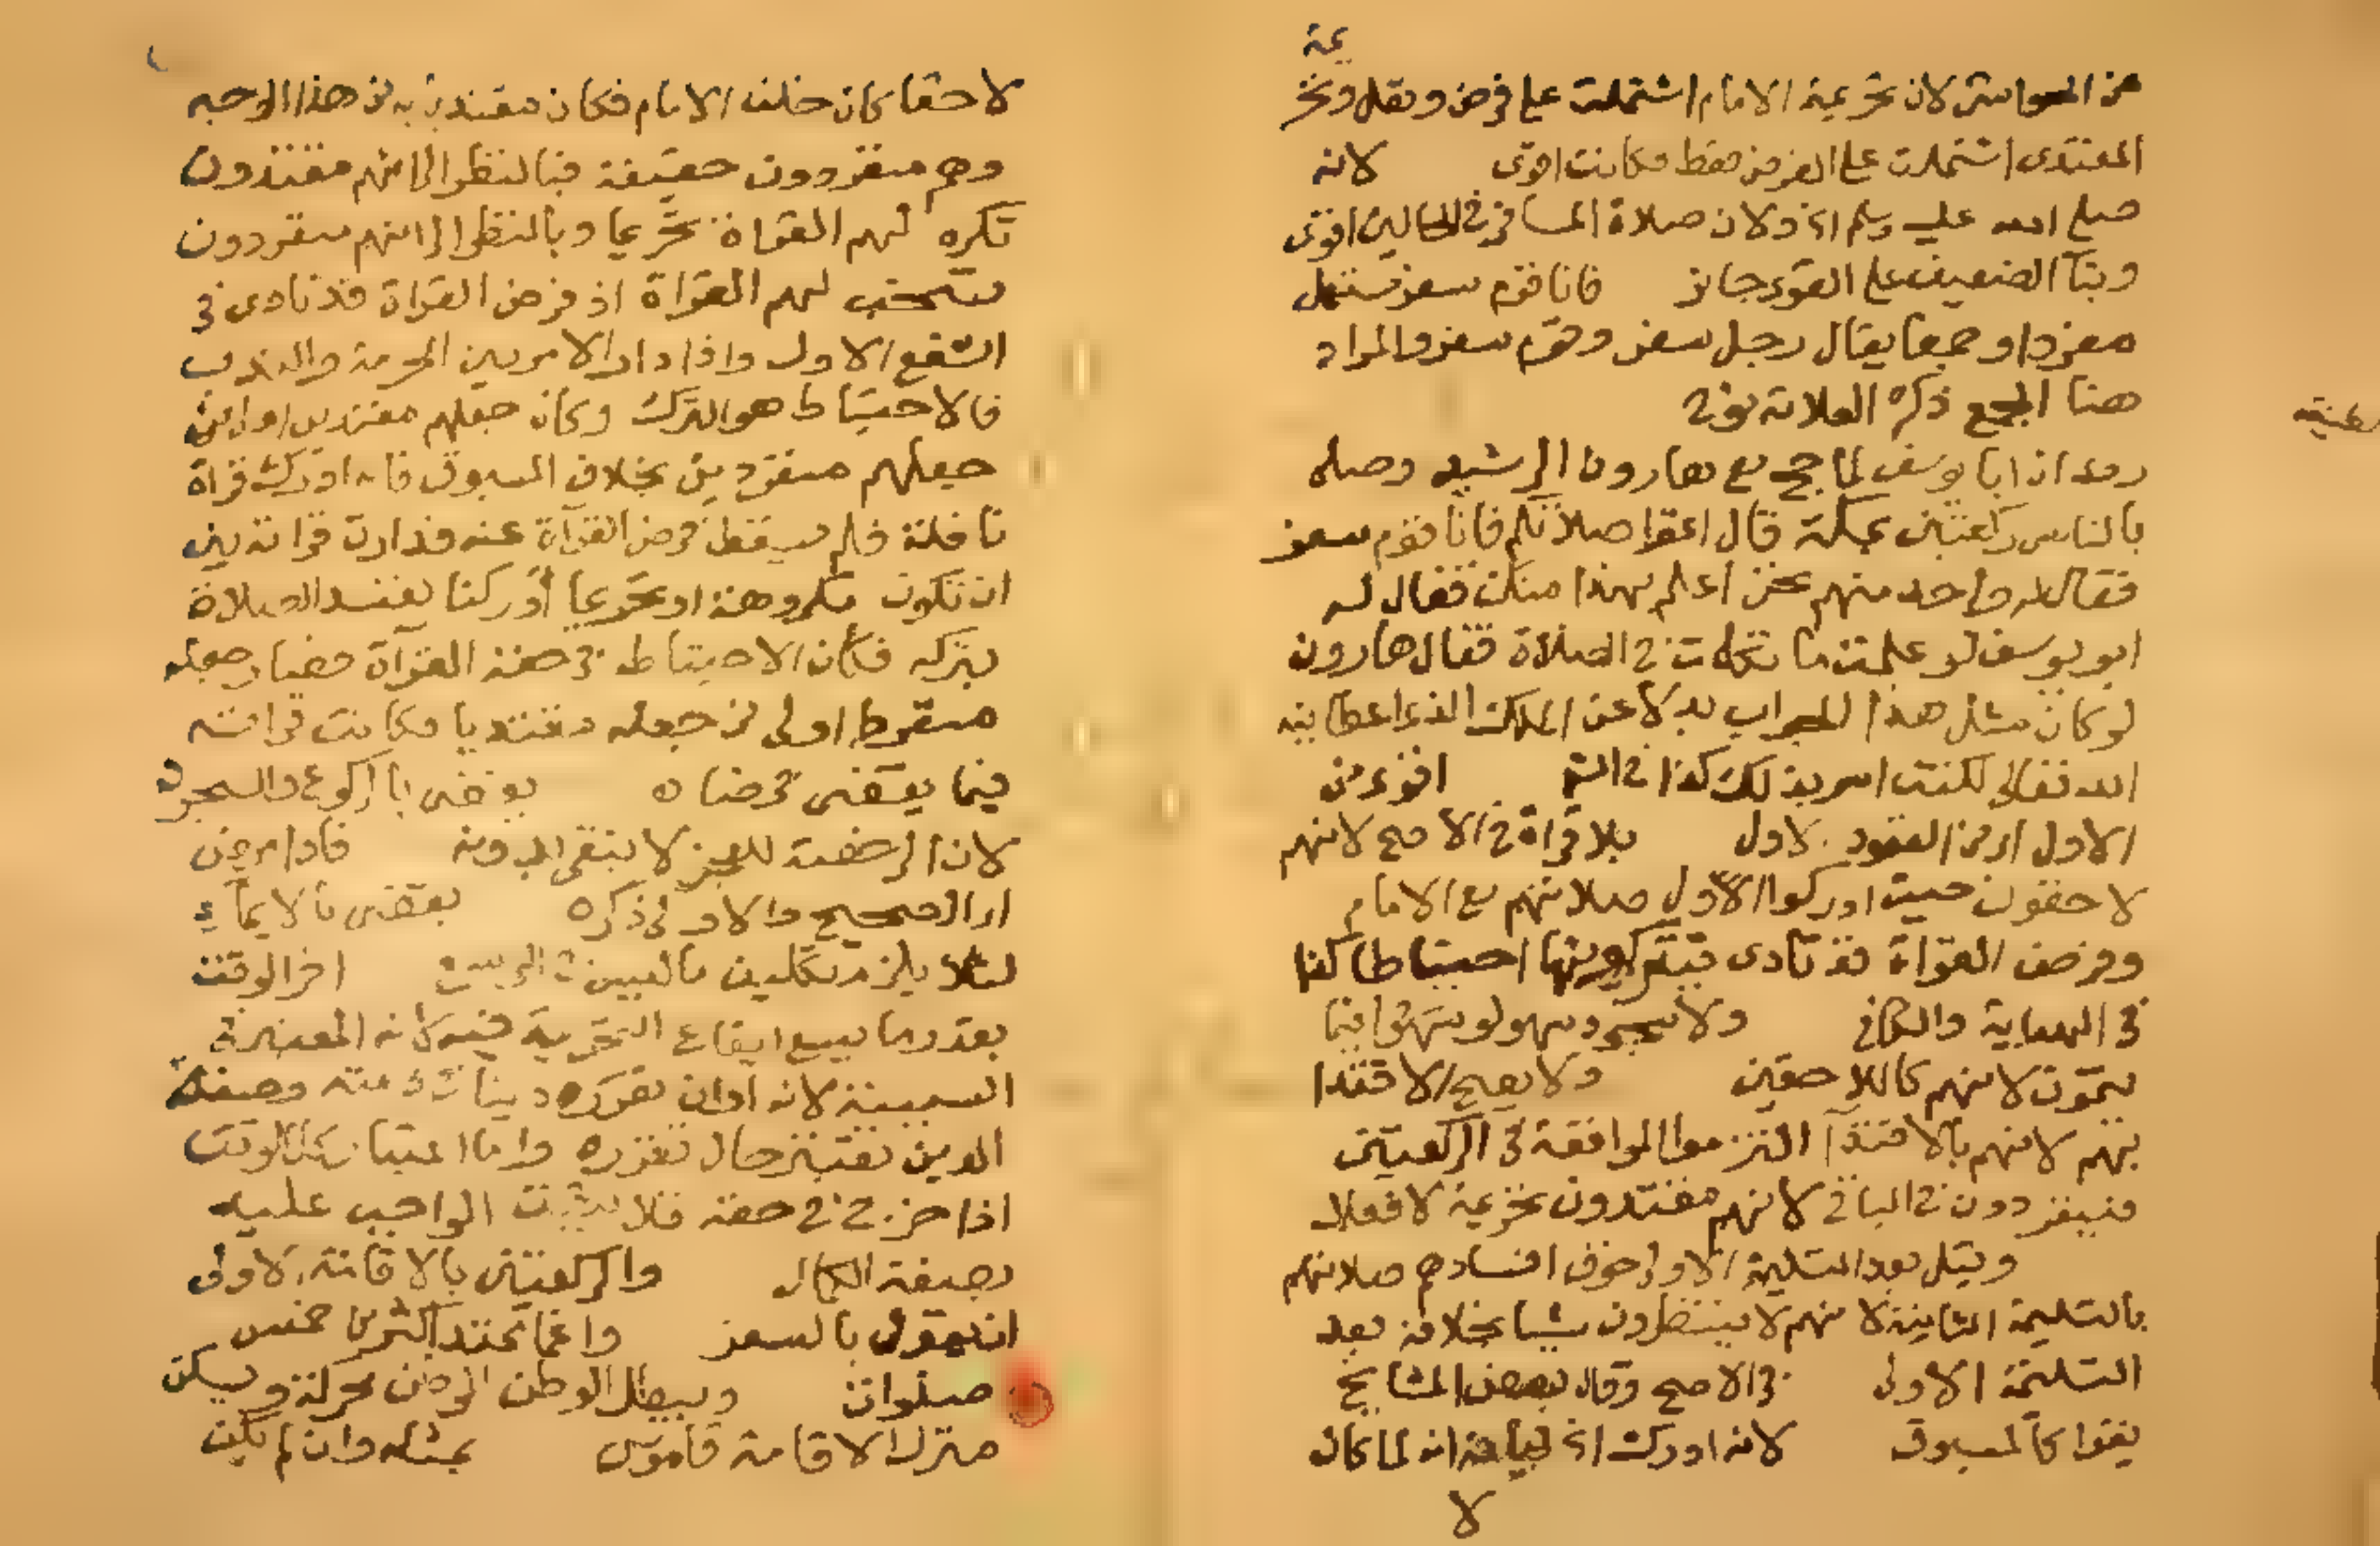 يمة
من الحواشى لان تحريمة الامام اشتملت على فرض ونفل وتحر
المقتدى اشتملت على الفرض فقط فكانت اقوى لانه
صلى الله عليه وسلم اى ولان صلاة المسافر فى الحالين اقوى
وبنآ الضعيف على القوى جائز فانا قوم سفر مستعمل
مفردا وجمعا يقال رجل سفر وقوم سفر والمراد
هنا الجمع ذكره العلامة نوح
روى ان ابا يوسف لما حج مع هارون الرشيد وصلى
بالناس ركعتين بمكة قال اتموا صلاتكم فانا قوم سفر
فقال له واحد منهم نحن اعلم بهذا منك فقال له
ابو يوسف لو علمت ما تكلمت فى الصلاة فقال هارون
لو كان مثل هذا الجواب بدلا عن الملك الذى اعطانيه
الله تعالى لكنت اسر بذلك كذا فى اقوى من
الاول اى من القعود الاول بلا قراة فى الاصح لانهم
لاحقون حيث ادركوا الاول صلاتهم مع الامام
وفرض القراة قد تادى فيتركونها احتياطا كذا
فى الهداية والكافى ولا سجود سهو لو سهوا فيما
يتمون لانهم كاللاحقين ولا يصح الاقتدا
بهم لانهم بالاقتدآ التزموا الموافقة فى الركعتين
فينفردون فى الباقى لانهم مقتدون تحريمة لا فعلا
وقيل بعد التسليمة الاولى خوف افسادهم صلاتهم
بالتسليمة الثانية لانهم لا ينتظرون شيا بخلافه بعد
التسليمة الاولى فى الاصح وقال بعض المشايخ
يقرا كالمسبوق لانه ادرك اى انه لما كان
لا
لاحقا كان خلف الامام فكان مقتديا به من هذا الوجه
وهم منفردون حقيقة فبالنظر الى انهم مقتدون
تكره لهم القراة تحريما وبالنظر الى انهم منفردون
تستحب لهم القراة اذ فرض القراة قد تادى فى
الشفع الاول واذا دار الامر بين الحرمة والندب
فالاحتياط هو الترك وكان جعلهم مقتدين اولى من
جعلهم منفردين بخلاف المسبوق فانه ادرك قراة
نافلة فلم يسقط فرض القرآة عنه فدارت قراته بين
ان تكون مكروهة او تحريما او ركنا يفسد الصلاة
بتركه فكان الاحتياط فى حقه القرآة فصار جعله
منفردا اولى من جعله مقتديا فكانت قراته
فيما يقضى فرضا ه يقضى بالركوع والسجود
لان الرخصة للعجز لا يبقى بدونه فاداء من
اى الصحيح والاولى ذكره يقضى بالايمآء
لئلا يلزم تكليف ما ليس فى الوسع اخر الوقت
بقدر ما يسع ايقاع التحريمة فيه لانه المعتبر فى
السببية لانه اوان تقرره دينا فى ذمته وصفة
الدين تعتبر حال تقرره واما اعتبار كل الوقت
اذا خرج فى حقه فلا يثبت الواجب عليه
بصفة الكمال والركعتين بالاقامة الاولى
ان يقول بالسفر وانما تحتد اكثر من خمس
صلوات ويبطل الوطن الوطن محركة ويسكن
منزل الاقامة قاموس بمثله وان لم يكن